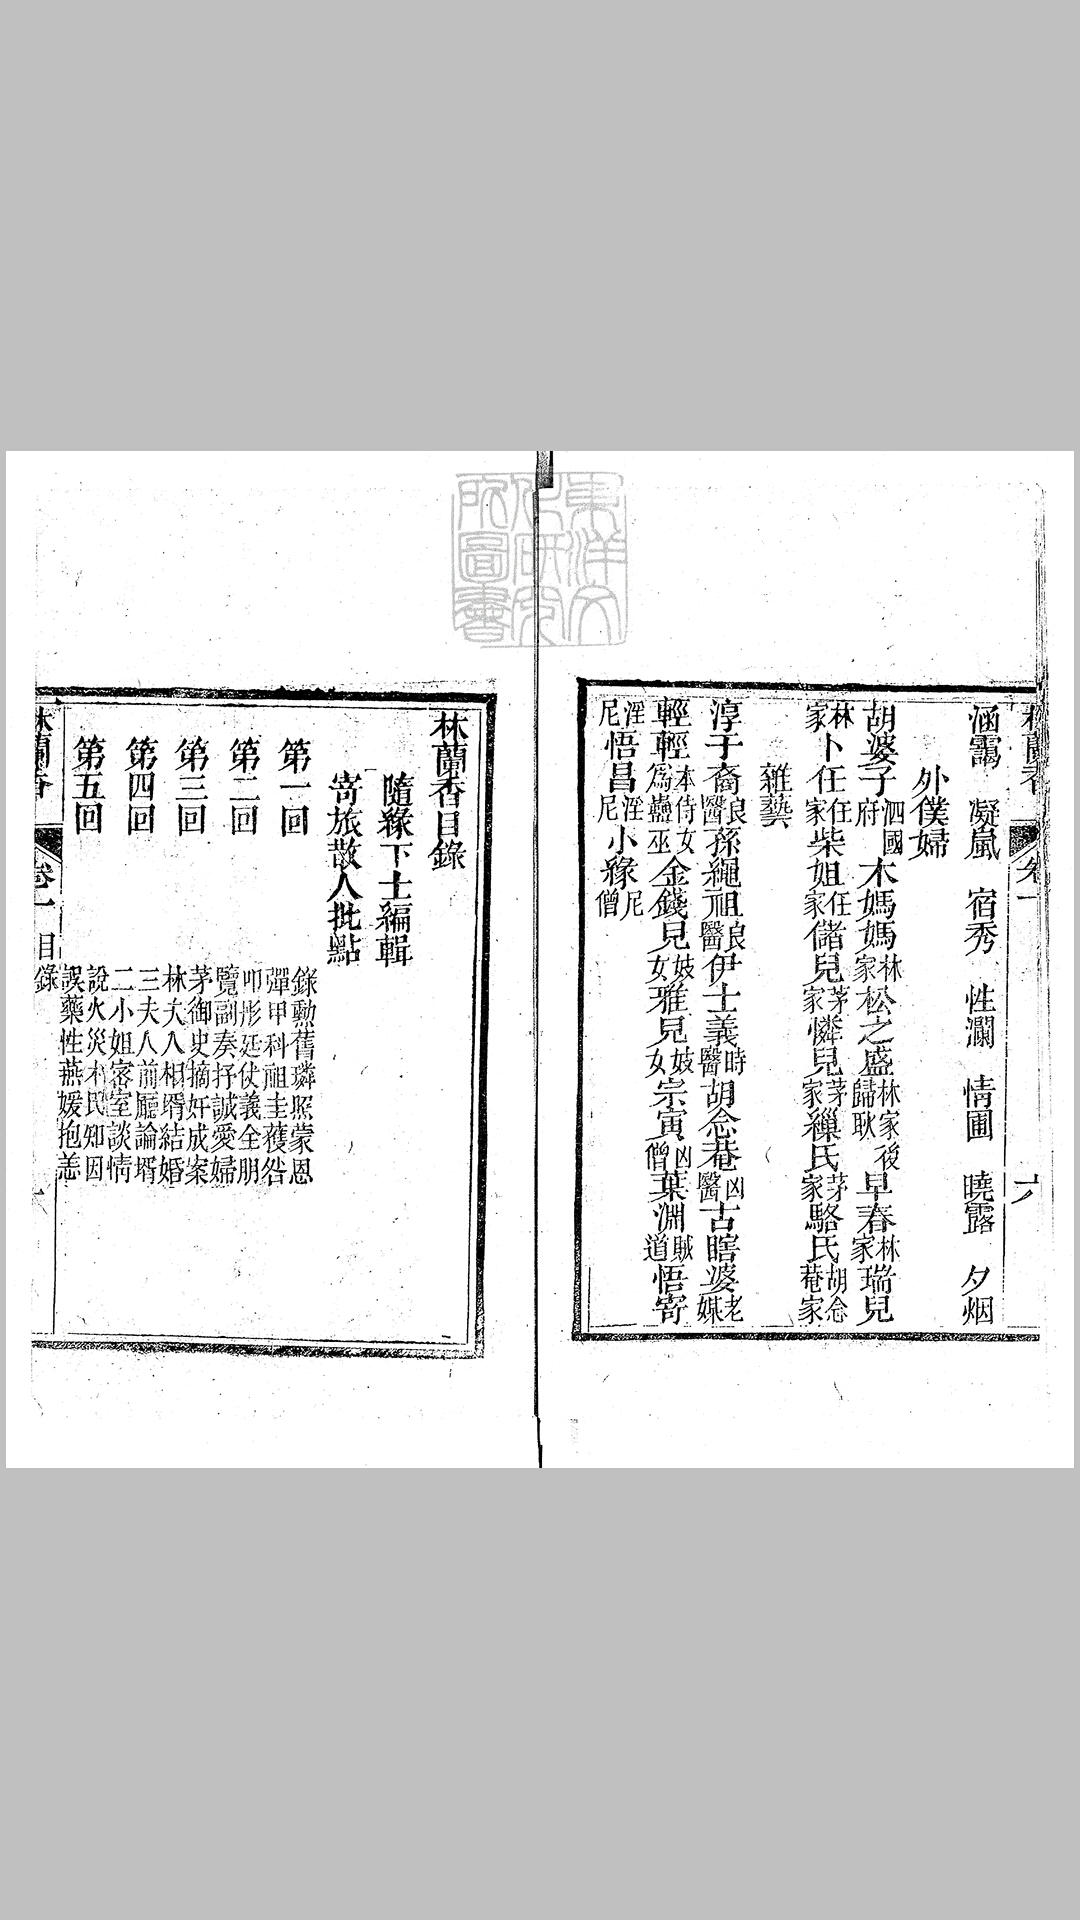 林蘭香 卷一 六
涵靄 凝嵐 宿秀 性瀾 情圃 曉露 夕烟
外僕婦
胡婆子泗國府 木媽媽林家 松之盛林家後歸耿 早春林家 瑞兒
林家 卜任任家 柴姐任家 儲兒茅家 憐兒茅家 巢氏茅家 駱氏胡念菴家
雜藝
淳于裔良醫 孫繩祖良醫 伊士義時醫 胡念菴凶醫 古瞎婆老媒
輕輕本侍女爲蠱巫 金錢兒妓女 雅兒妓女 宗寅凶僧 葉淵賊道 悟寄
淫尼 悟昌淫尼 小緣尼僧
林蘭香目錄
隨緣下士編輯
寄旅散人批點
第一回 錄勳舊璘照蒙恩 彈甲科祖圭獲咎
第二回 叩彤廷仗義全朋 覽副奏抒誠愛婦
第三回 茅御史摘奸成案 林夫人相壻結婚
第四回 三夫人前廳論壻 二小姐密室談情
第五回 說火災木民知因 誤藥性燕媛抱恙
林蘭香 卷一 目錄 一
東洋文化研究所圖書